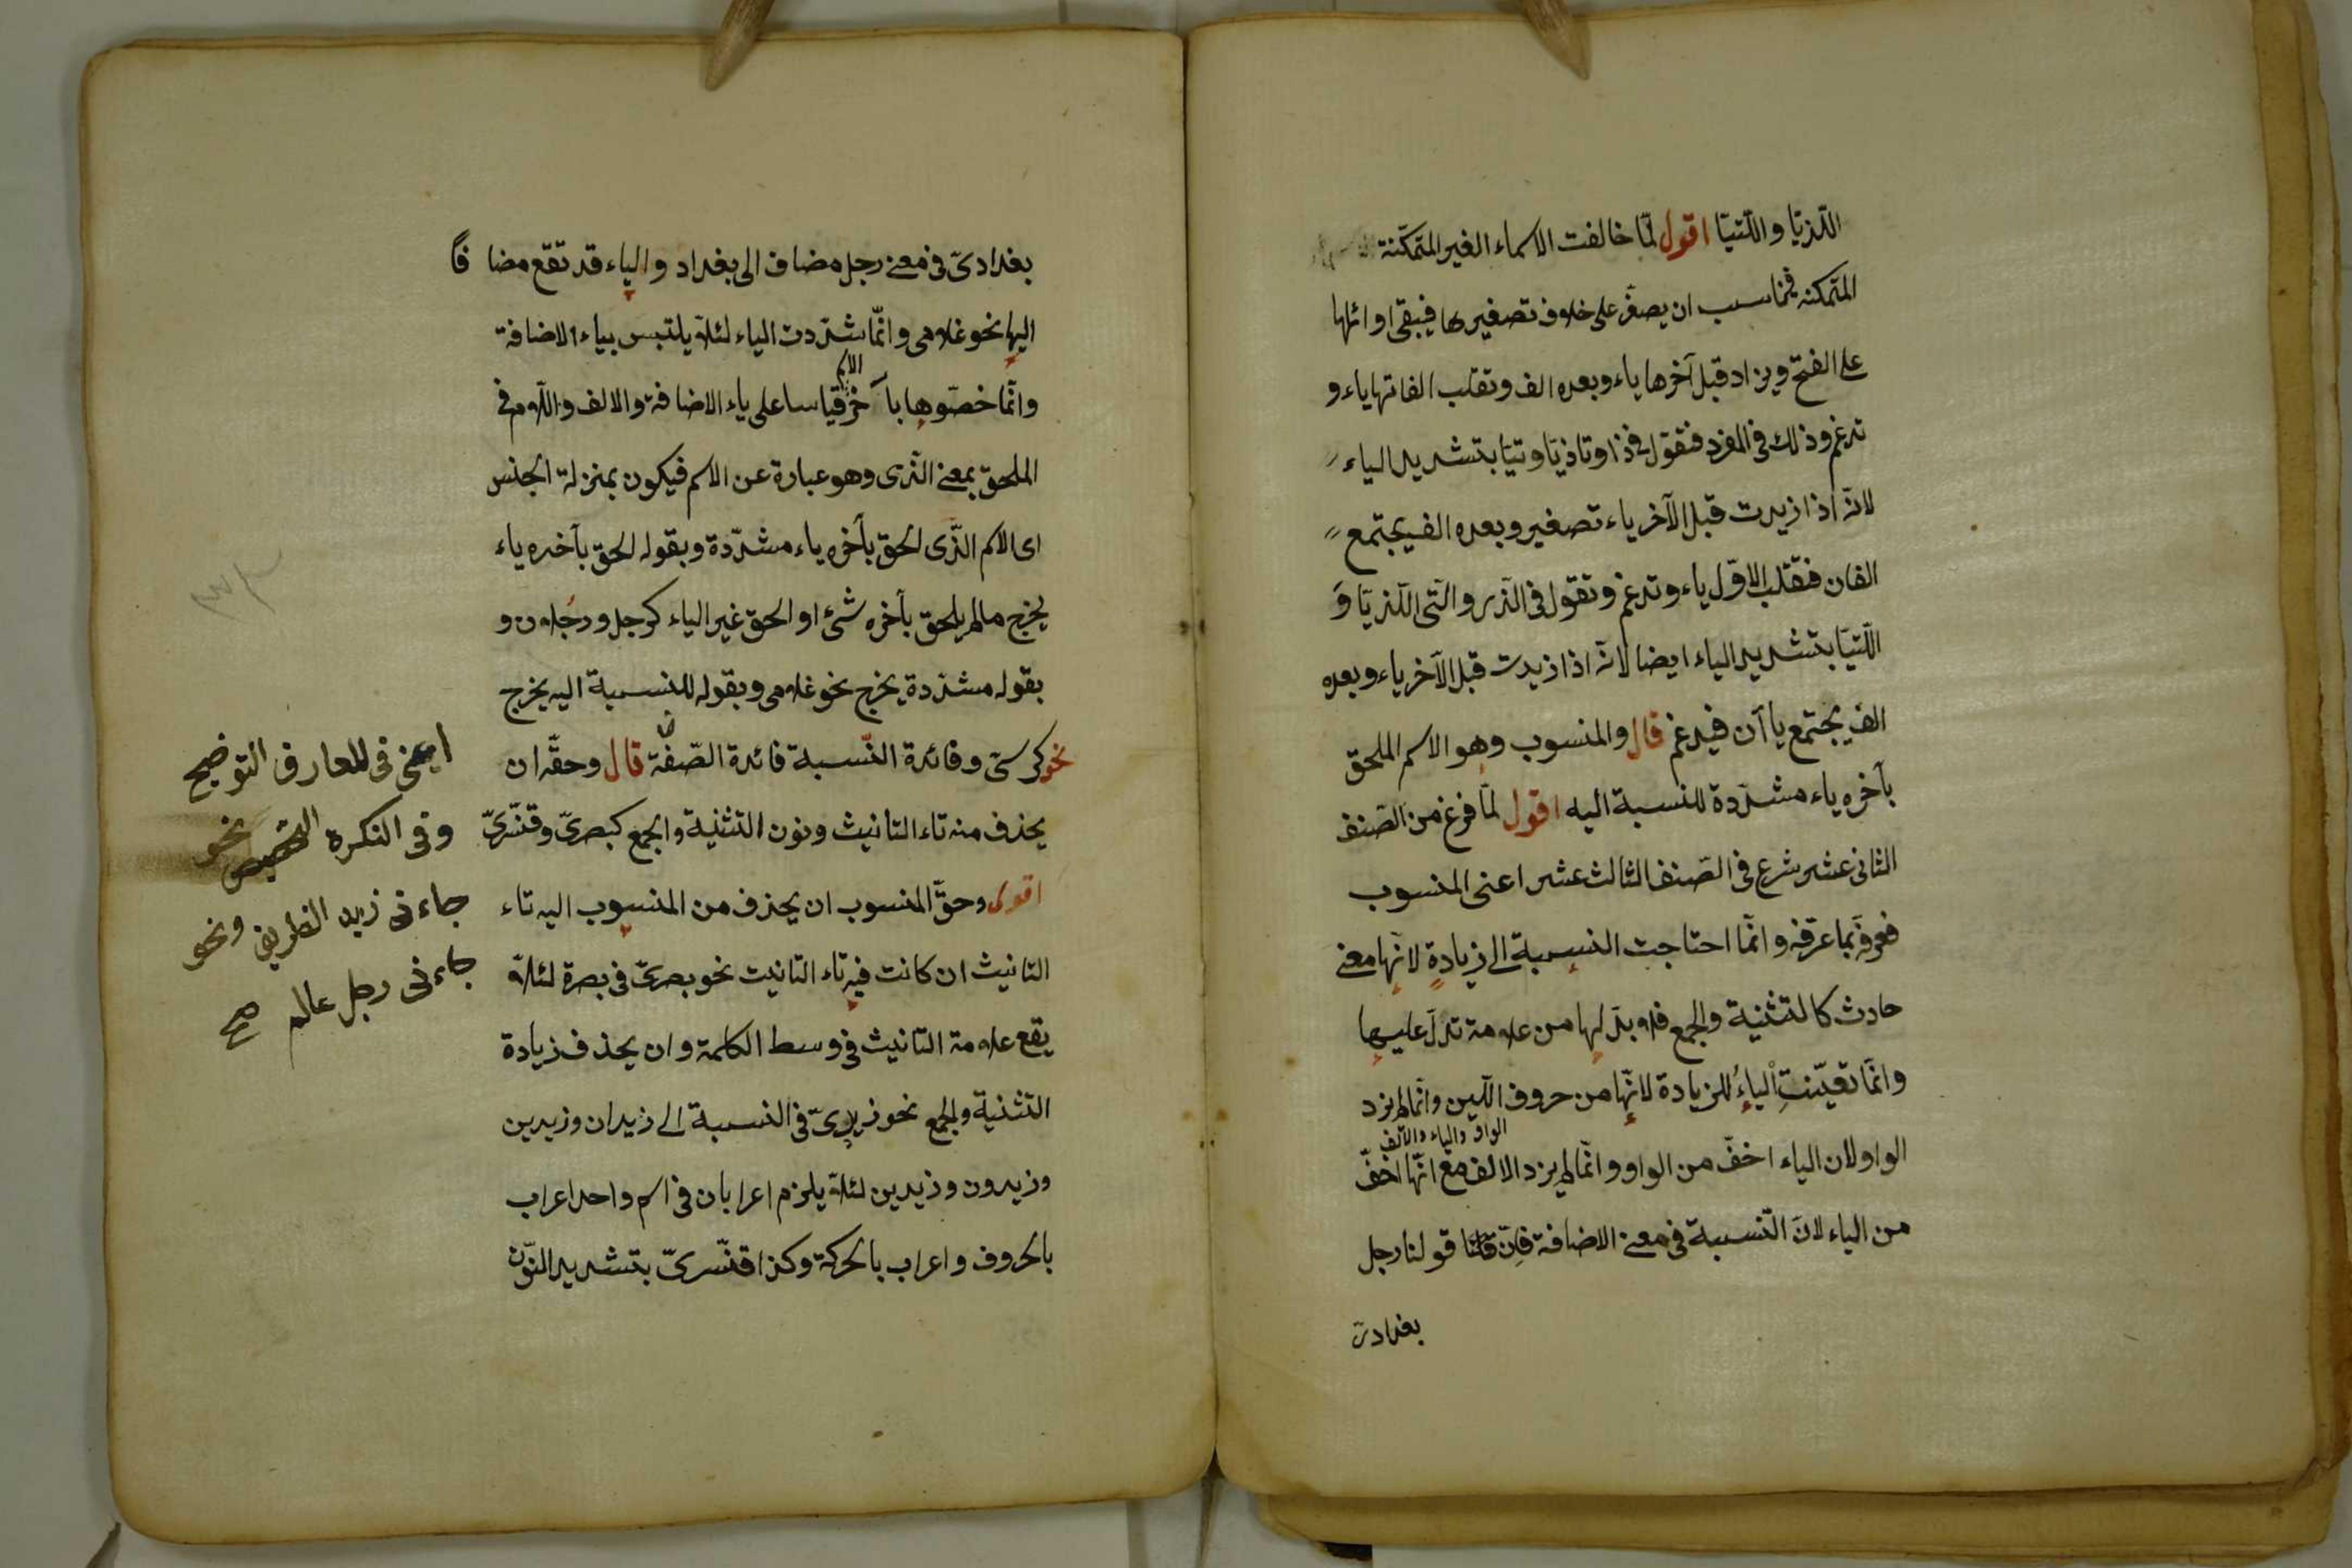 اللّذيّا واللّتيّا اقول لمّا خالفت الاسماء الغير المتمكّنة
المتمكنه فناسب ان يصغّر على خلاف تصغيرها فيبقى اوائلها
على الفتح ويزاد قبل آخرها ياء وبعده الف وتقلب الفاتها ياء و
تدغم وذلك فى المفرد فنقول فى ذا وتا ذيّا وتيّا بتشديد الياء
لانّه اذا زيدت قبل الآخر ياء تصغير وبعده الف يجتمع
الفان فتقلب الاوّل ياء وتدغم وتقول فى الّذى والّتى اللّذيّا وَ
اللّتيّا بتشديد الياء ايضا لانّه اذا زيدت قبل الآخر ياء وبعده
الف يجتمع ياآن فيدغم قال والمنسوب وهو الاسم الملحق
بآخره ياء مشدّدة للنسبة اليه اقول لمّا فرغ من الصّنف
الثانى عشر شرع فى الصّنف الثالث عشر اعنى المنسوب
فعرفه بما عرّفه وانّما احتاجت النسبة الى زيادةٍ لانّها معنى
حادث كالتثنية والجمع فلا بدّ لها من علامة تدلّ عليها
وانّما تعيّنت الياءُ للزيادة لانّها من حروف اللّين وانّما لم يزد
الواو والياء والالف
الواو لان الياء اخفّ من الواو وانّما لم يزد الالف مع انّها اخفّ
من الياء لانّ النّسبة فى معنى الاضافة فانّ قولنا رجل
بغدادىّ
بغدادىّ فى معنى رجل مضاف الى بغداد والياء قد تقع مضا فًا
اليها نحو غلامى وانّما شدّدت الياء لئلاّ يلتبس بياء الاضافة
وانّما خصّوها بآخر الاسم قياسا على ياء الاضافة والالف واللّام فى
الملحق بمعنى الّذى وهو عبارة عن الاسم فيكون بمنزلة الجنس
اى الاسم الّذى الحق بآخره ياء مشدّدة وبقوله الحق بآخره ياء
يخرج مالم يلحق بآخره شئ او الحق غير الياء كرجل ورجُلان و
بقوله مشدّدة يخرج نحو غلامى وبقوله للنسبة اليه يخرج
نحو كرسىّ وفائدة النّسبة فائدة الصّفة قال وحقّه ان
يحذف منه تاء التانيث ونون التثنية والجمع كبصرىّ وقنّسرىّ
اقول وحقّ المنسوب ان يحذف من المنسوب اليه تاء
التانيث ان كانت فيه تاء التانيث نحو بصرىّ فى بصرة لئلاّ
يقع علامة التانيث فى وسط الكلمة وان يحذف زيادة
التثنية والجمع نحو زيدىّ فى النسبة الى زيدان وزيدين
وزيدون وزيدين لئلاّ يلزم اعرابان فى اسم واحد اعراب
بالحروف واعراب بالحركة وكذا قنّسرىّ بتشديد النّون
اعنى فى المعارف التوضيح
وفى النكرة التخصيص نحو
جاءنى زيد الظريف ونحو
جاءنى رجل عالم صح